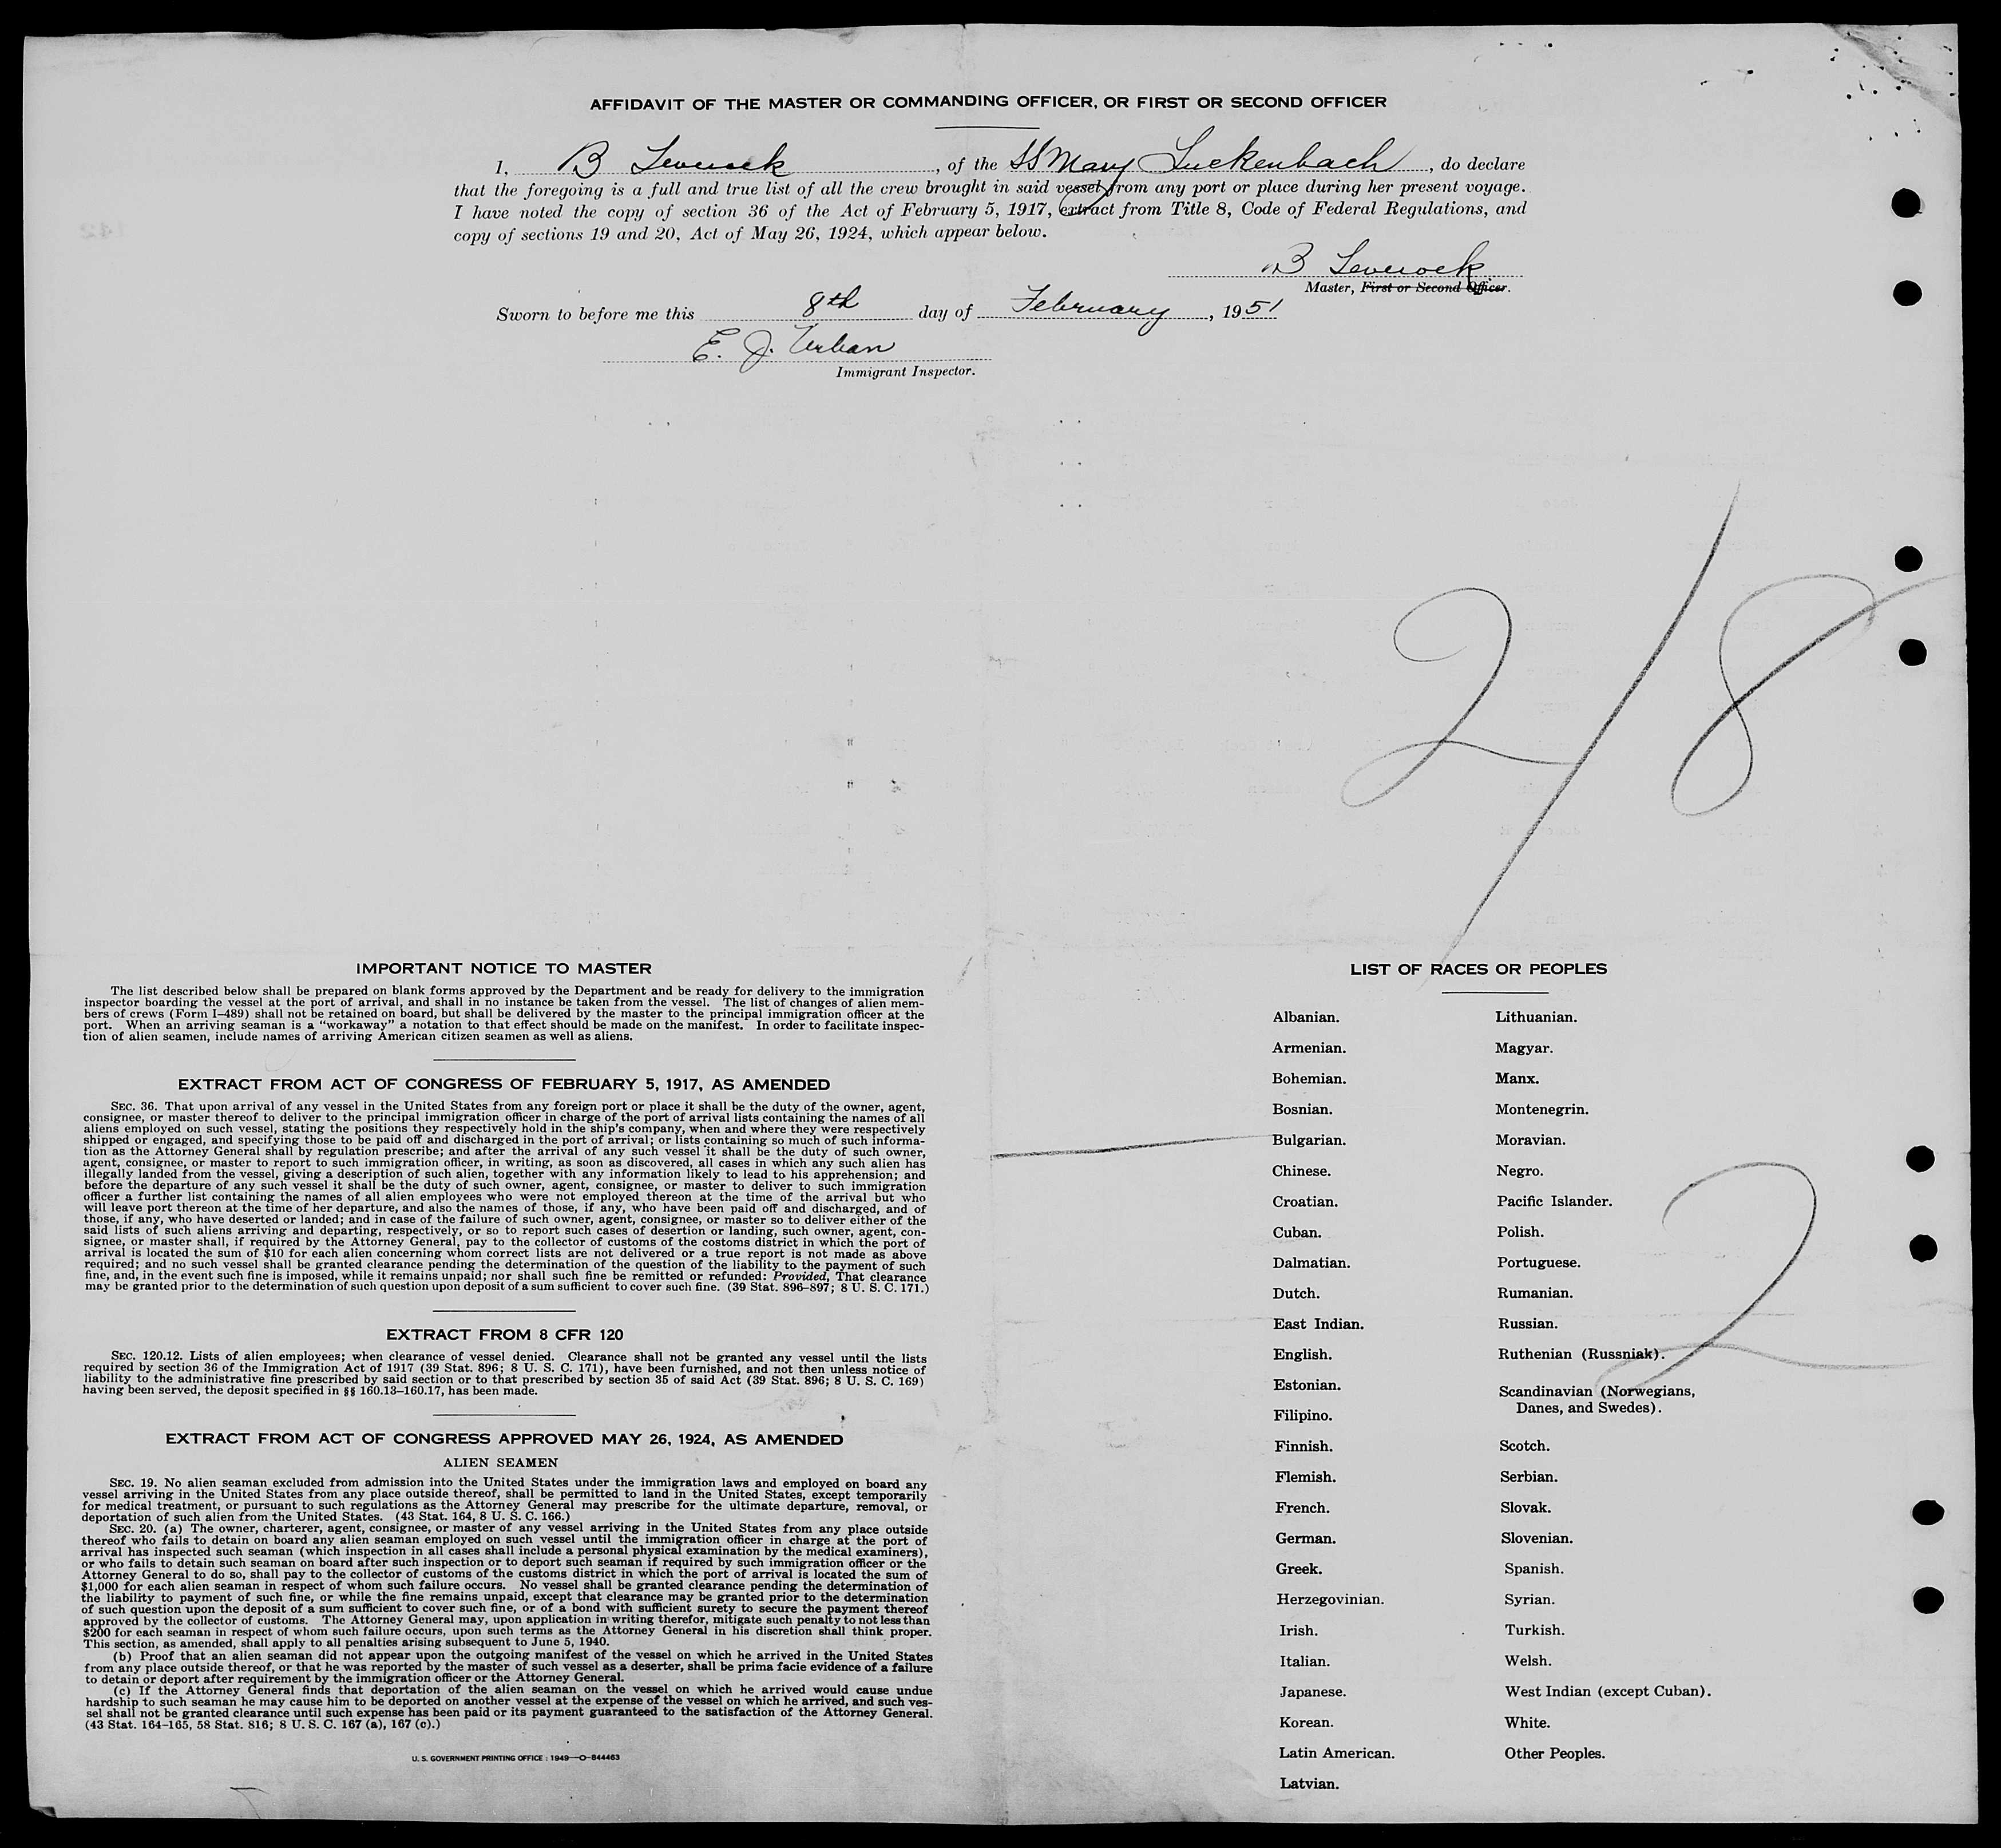 AFFIDAVIT OF THE MASTER OR COMMANDING OFFICER, OR FIRST OR SECOND OFFICER
I, B Leverock, of the SS Mary Luckenbach, do declare
that the foregoing is a full and true list of all the crew brought in said vessel from any port or place during her present voyage.
I have noted the copy of section 36 of the Act of February 5, 1917, extract from Title 8, Code of Federal Regulations, and
copy of sections 19 and 20, Act of May 26, 1924, which appear below.
B Leverock
Master, First or Second Officer.
Sworn to before me this 8th day of February, 1951
E. J. Urban
Immigrant Inspector.
2/8
IMPORTANT NOTICE TO MASTER
The list described below shall be prepared on blank forms approved by the Department and be ready for delivery to the immigration
inspector boarding the vessel at the port of arrival, and shall in no instance be taken from the vessel. The list of changes of alien mem-
bers of crews (Form I-489) shall not be retained on board, but shall be delivered by the master to the principal immigration officer at the
port. When an arriving seaman is a "workaway" a notation to that effect should be made on the manifest. In order to facilitate inspec-
tion of alien seamen, include names of arriving American citizen seamen as well as aliens.
EXTRACT FROM ACT OF CONGRESS OF FEBRUARY 5, 1917, AS AMENDED
SEC. 36. That upon arrival of any vessel in the United States from any foreign port or place it shall be the duty of the owner, agent,
consignee, or master thereof to deliver to the principal immigration officer in charge of the port of arrival lists containing the names of all
aliens employed on such vessel, stating the positions they respectively hold in the ship's company, when and where they were respectively
shipped or engaged, and specifying those to be paid off and discharged in the port of arrival; or lists containing so much of such informa-
tion as the Attorney General shall by regulation prescribe; and after the arrival of any such vessel it shall be the duty of such owner,
agent, consignee, or master to report to such immigration officer, in writing, as soon as discovered, all cases in which any such alien has
illegally landed from the vessel, giving a description of such alien, together with any information likely to lead to his apprehension; and
before the departure of any such vessel it shall be the duty of such owner, agent, consignee, or master to deliver to such immigration
officer a further list containing the names of all alien employees who were not employed thereon at the time of the arrival but who
will leave port thereon at the time of her departure, and also the names of those, if any, who have been paid off and discharged, and of
those, if any, who have deserted or landed; and in case of the failure of such owner, agent, consignee, or master so to deliver either of the
said lists of such aliens arriving and departing, respectively, or so to report such cases of desertion or landing, such owner, agent, con-
signee, or master shall, if required by the Attorney General, pay to the collector of customs of the costoms district in which the port of
arrival is located the sum of $10 for each alien concerning whom correct lists are not delivered or a true report is not made as above
required; and no such vessel shall be granted clearance pending the determination of the question of the liability to the payment of such
fine, and, in the event such fine is imposed, while it remains unpaid; nor shall such fine be remitted or refunded: Provided, That clearance
may be granted prior to the determination of such question upon deposit of a sum sufficient to cover such fine. (39 Stat. 896-897; 8 U. S. C. 171.)
EXTRACT FROM 8 CFR 120
SEC. 120.12. Lists of alien employees; when clearance of vessel denied. Clearance shall not be granted any vessel until the lists
required by section 36 of the Immigration Act of 1917 (39 Stat. 896; 8 U. S. C. 171), have been furnished, and not then unless notice of
liability to the administrative fine prescribed by said section or to that prescribed by section 35 of said Act (39 Stat. 896; 8 U. S. C. 169)
having been served, the deposit specified in §§ 160.13-160.17, has been made.
EXTRACT FROM ACT OF CONGRESS APPROVED MAY 26, 1924, AS AMENDED
ALIEN SEAMEN
SEC. 19. No alien seaman excluded from admission into the United States under the immigration laws and employed on board any
vessel arriving in the United States from any place outside thereof, shall be permitted to land in the United States, except temporarily
for medical treatment, or pursuant to such regulations as the Attorney General may prescribe for the ultimate departure, removal, or
deportation of such alien from the United States. (43 Stat. 164, 8 U. S. C. 166.)
SEC. 20. (a) The owner, charterer, agent, consignee, or master of any vessel arriving in the United States from any place outside
thereof who fails to detain on board any alien seaman employed on such vessel until the immigration officer in charge at the port of
arrival has inspected such seaman (which inspection in all cases shall include a personal physical examination by the medical examiners),
or who fails to detain such seaman on board after such inspection or to deport such seaman if required by such immigration officer or the
Attorney General to do so, shall pay to the collector of customs of the customs district in which the port of arrival is located the sum of
$1,000 for each alien seaman in respect of whom such failure occurs. No vessel shall be granted clearance pending the determination of
the liability to payment of such fine, or while the fine remains unpaid, except that clearance may be granted prior to the determination
of such question upon the deposit of a sum sufficient to cover such fine, or of a bond with sufficient surety to secure the payment thereof
approved by the collector of customs. The Attorney General may, upon application in writing therefor, mitigate such penalty to not less than
$200 for each seaman in respect of whom such failure occurs, upon such terms as the Attorney General in his discretion shall think proper.
This section, as amended, shall apply to all penalties arising subsequent to June 5, 1940.
(b) Proof that an alien seaman did not appear upon the outgoing manifest of the vessel on which he arrived in the United States
from any place outside thereof, or that he was reported by the master of such vessel as a deserter, shall be prima facie evidence of a failure
to detain or deport after requirement by the immigration officer or the Attorney General.
(c) If the Attorney General finds that deportation of the alien seaman on the vessel on which he arrived would cause undue
hardship to such seaman he may cause him to be deported on another vessel at the expense of the vessel on which he arrived, and such ves-
sel shall not be granted clearance until such expense has been paid or its payment guaranteed to the satisfaction of the Attorney General.
(43 Stat. 164-165, 58 Stat. 816; 8 U. S. C. 167 (a), 167 (c).)
U. S. GOVERNMENT PRINTING OFFICE : 1949—O-844463
LIST OF RACES OR PEOPLES
Albanian.
Armenian.
Bohemian.
Bosnian.
Bulgarian.
Chinese.
Croatian.
Cuban.
Dalmatian.
Dutch.
East Indian.
English.
Estonian.
Filipino.
Finnish.
Flemish.
French.
German.
Greek.
Herzegovinian.
Irish.
Italian.
Japanese.
Korean.
Latin American.
Latvian.
Lithuanian.
Magyar.
Manx.
Montenegrin.
Moravian.
Negro.
Pacific Islander.
Polish.
Portuguese.
Rumanian.
Russian.
Ruthenian (Russniak).
Scandinavian (Norwegians,
Danes, and Swedes).
Scotch.
Serbian.
Slovak.
Slovenian.
Spanish.
Syrian.
Turkish.
Welsh.
West Indian (except Cuban).
White.
Other Peoples.
2